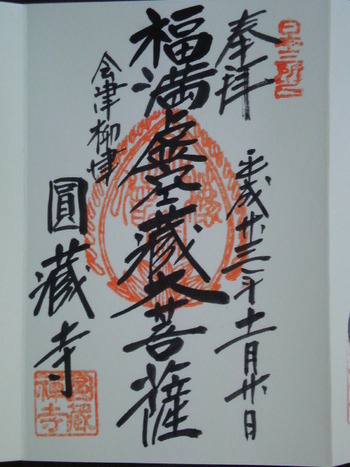 奉拝
平成廿三年十一月廿日
福満虚空蔵大菩薩
会津柳津
圓蔵寺
日本三所之一
圓蔵禅寺